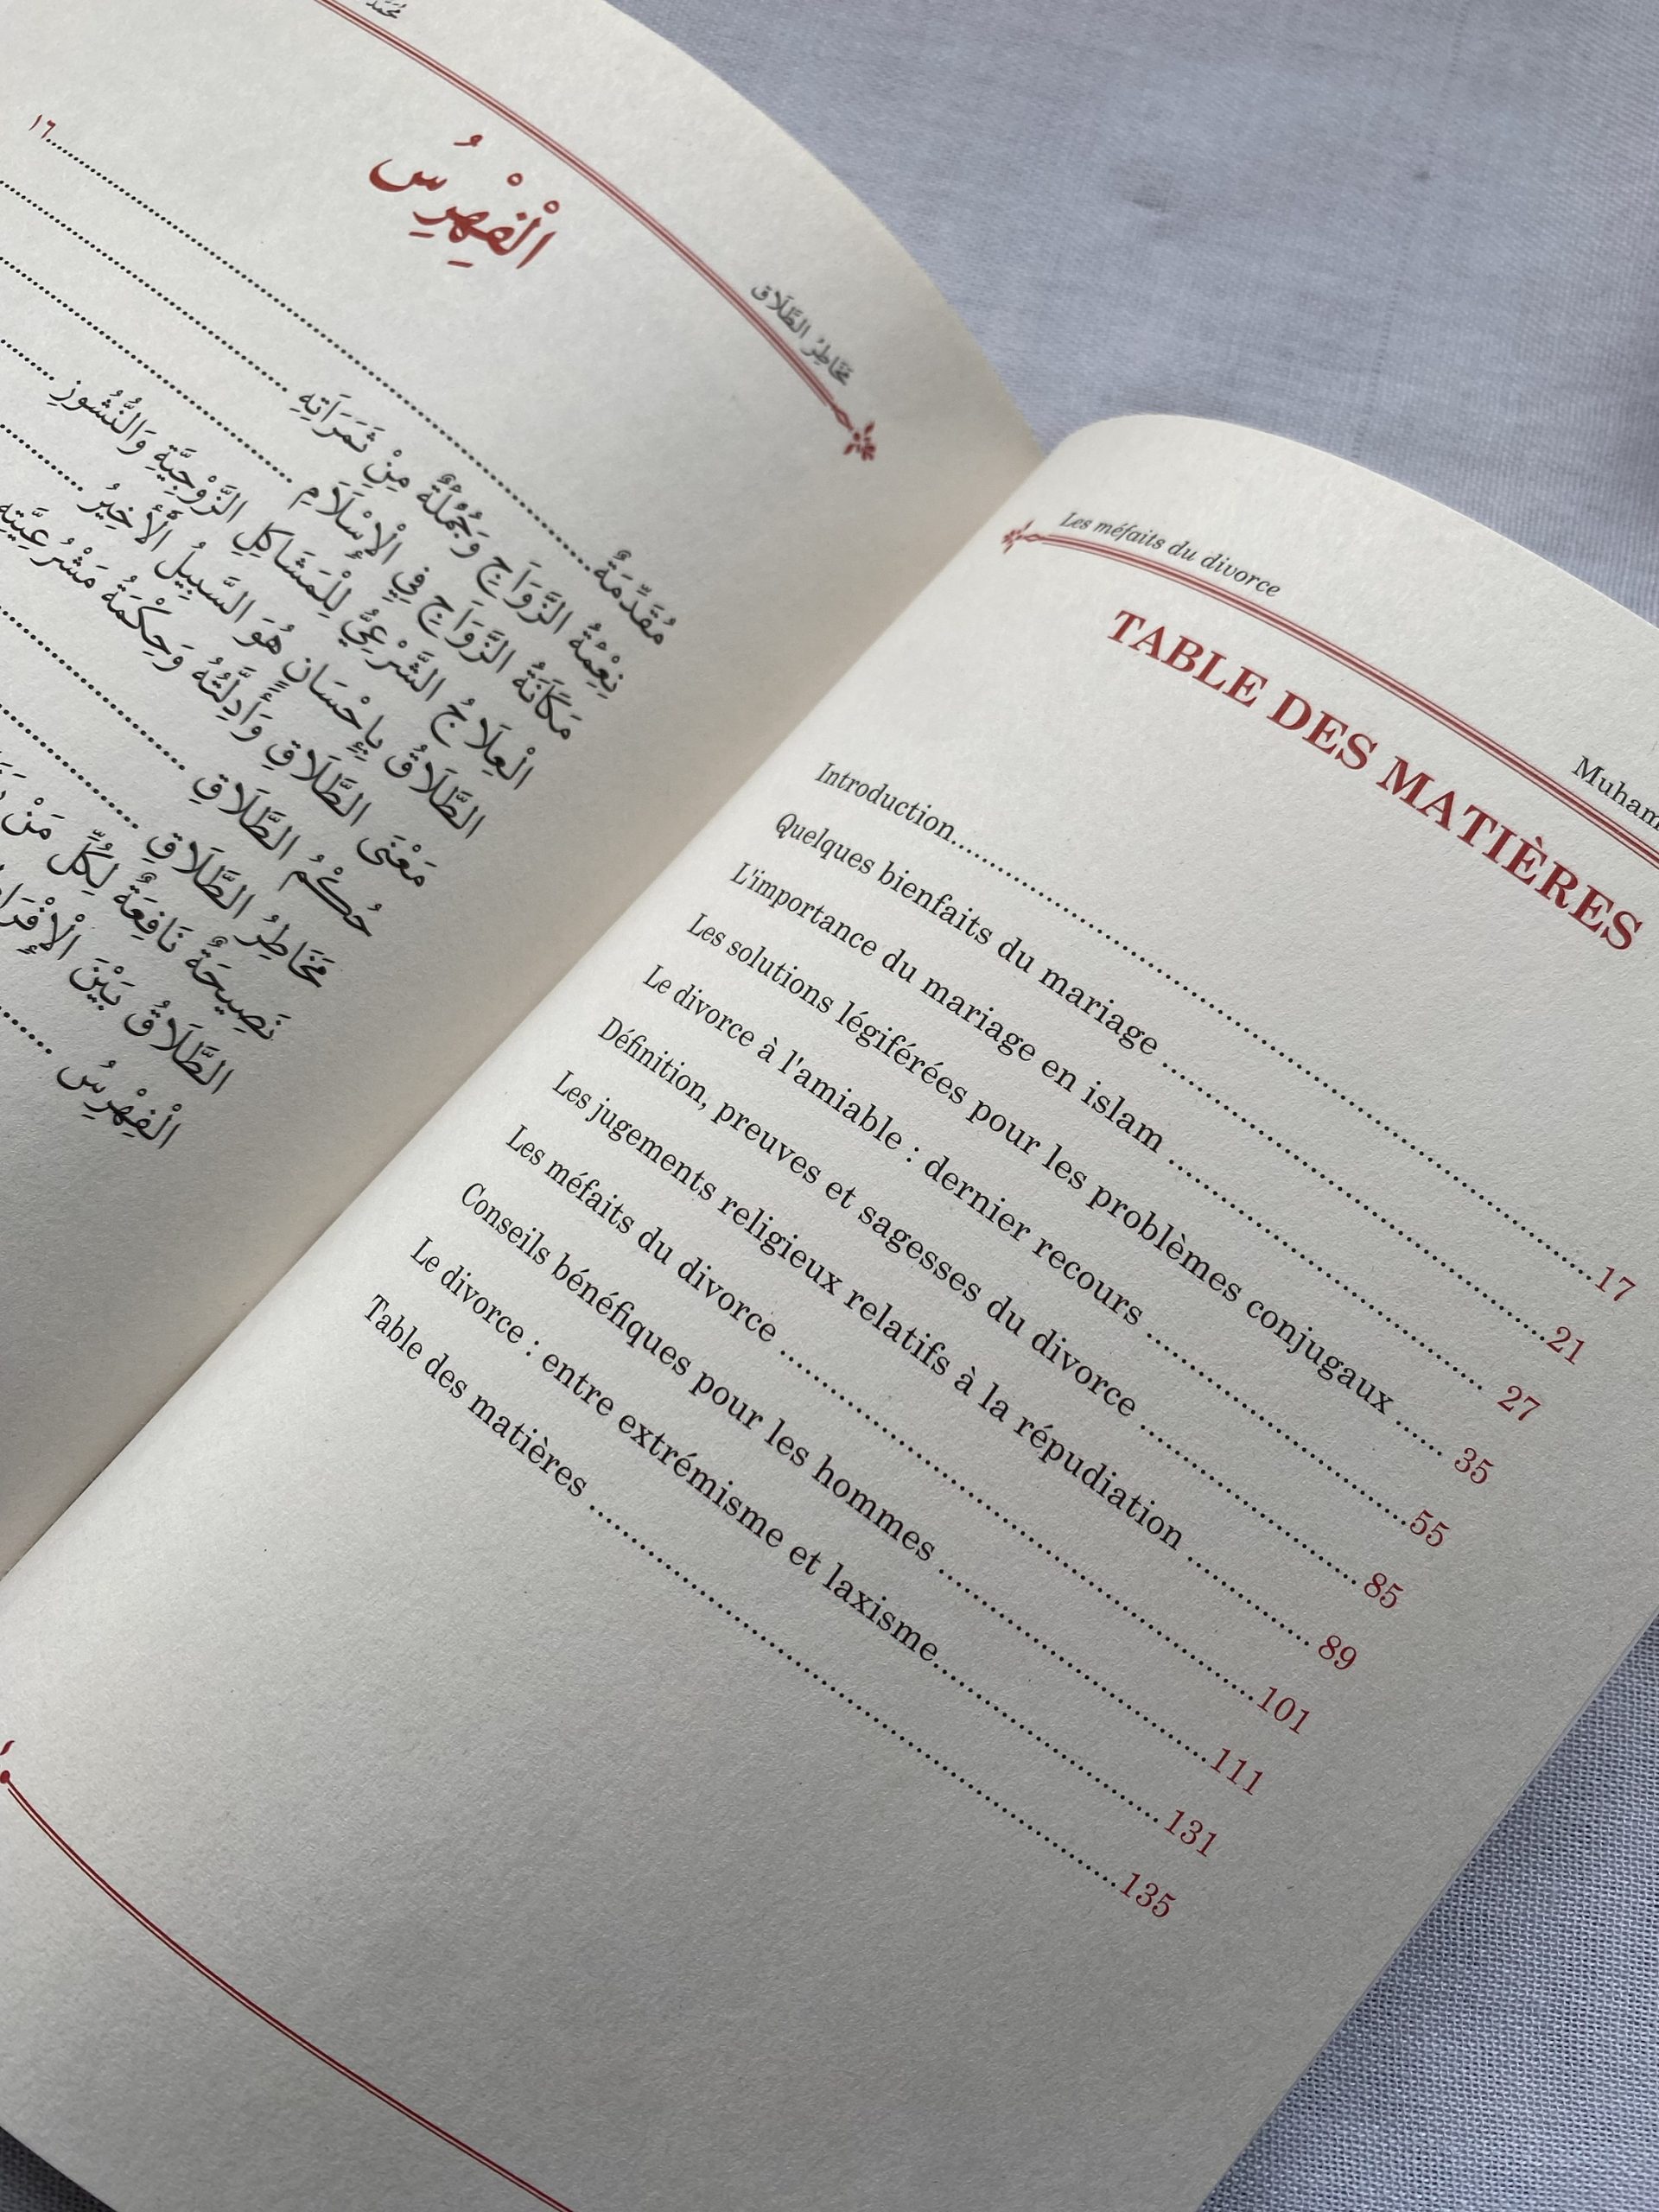 مَخَاطِرُ الطَّلَاقِ
الْفِهْرِسُ
مُقَدِّمَةٌ ١٦
نِعْمَةُ الزَّوَاجِ وَجُمْلَةٌ مِنْ ثَمَرَاتِهِ
مَكَانَةُ الزَّوَاجِ فِي الْإِسْلَامِ
الْعِلَاجُ الشَّرْعِيُّ لِلْمَشَاكِلِ الزَّوْجِيَّةِ وَالنُّشُوزِ
الطَّلَاقُ بِإِحْسَانٍ هُوَ السَّبِيلُ الْأَخِيرُ
مَعْنَى الطَّلَاقِ وَأَدِلَّتُهُ وَحِكْمَةُ مَشْرُعِيَّتِهِ
حُكْمُ الطَّلَاقِ
مَخَاطِرُ الطَّلَاقِ
نَصِيحَةٌ نَافِعَةٌ لِكُلِّ مَنْ
الطَّلَاقُ بَيْنَ
الْفِهْرِسُ
Les méfaits du divorce
TABLE DES MATIÈRES
Introduction 17
Quelques bienfaits du mariage 21
L'importance du mariage en islam 27
Les solutions légiférées pour les problèmes conjugaux 35
Le divorce à l'amiable : dernier recours 55
Définition, preuves et sagesses du divorce 85
Les jugements religieux relatifs à la répudiation 89
Les méfaits du divorce 101
Conseils bénéfiques pour les hommes 111
Le divorce : entre extrémisme et laxisme 131
Table des matières 135